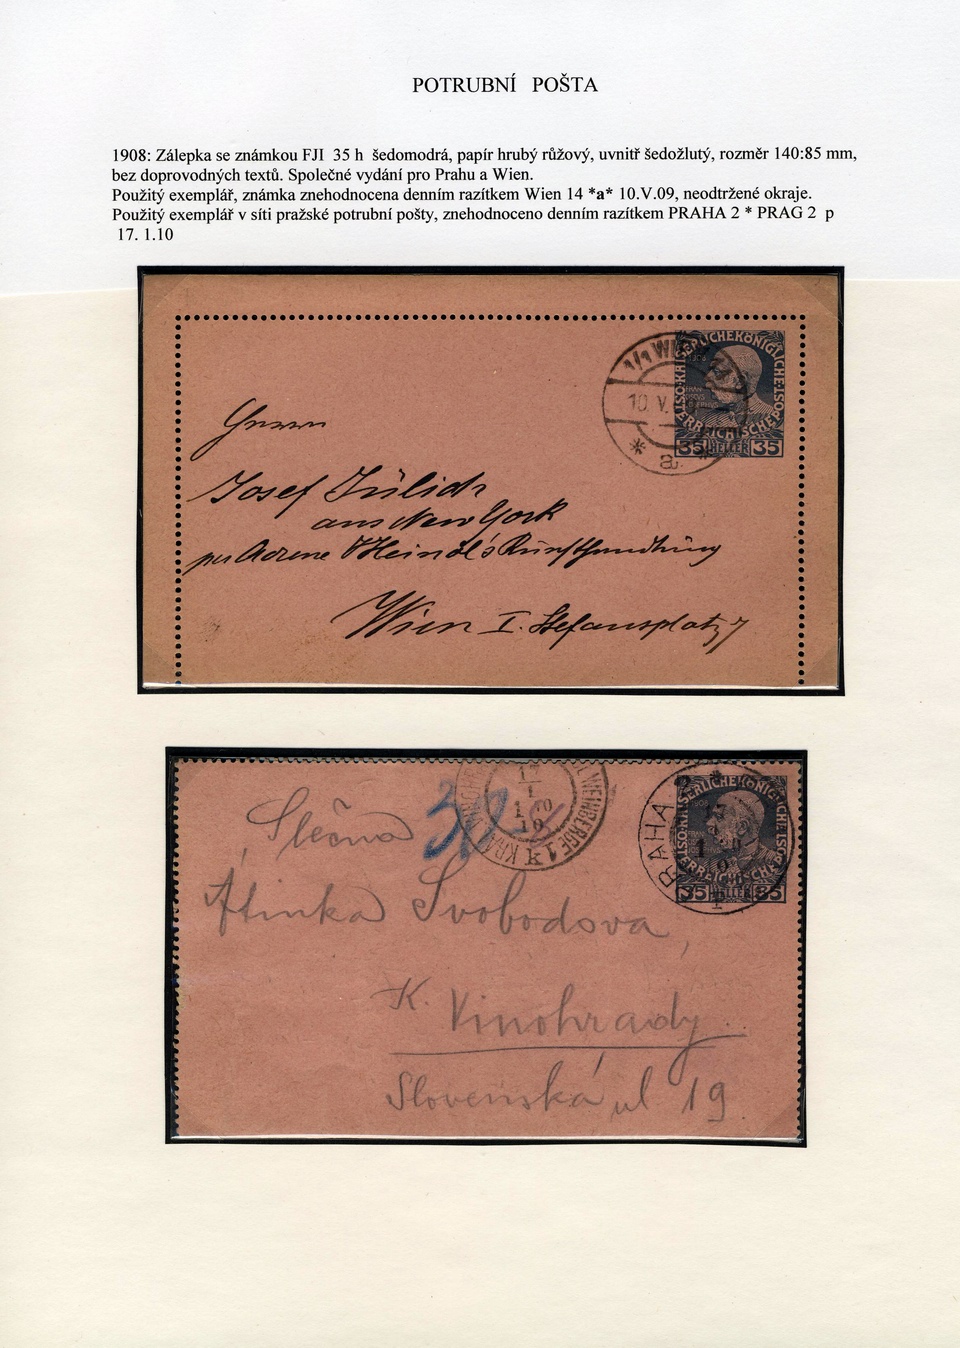 POTRUBNÍ POŠTA
1908: Zálepka se známkou FJI 35 h šedomodrá, papír hrubý růžový, uvnitř šedožlutý, rozměr 140:85 mm,
bez doprovodných textů. Společné vydání pro Prahu a Wien.
Použitý exemplář, známka znehodnocena denním razítkem Wien 14 *a* 10.V.09, neodtržené okraje.
Použitý exemplář v síti pražské potrubní pošty, znehodnoceno denním razítkem PRAHA 2 * PRAG 2 p
17. 1.10
1/1 WIEN
10. V.
* a *
KAISERLICHE KÖNIGLICHE
ÖSTERREICHISCHE POST
35 HELLER 35
Herrn
Josef Jülich
aus New York
Heindl's Kunsthandlung
Wien I. Stefansplatz 7
17
WEINBERGE 1
k
30
PRAHA 2
17
35 HELLER 35
Slečna
Svobodova,
K. Vinohrady
Slovenská ul 19